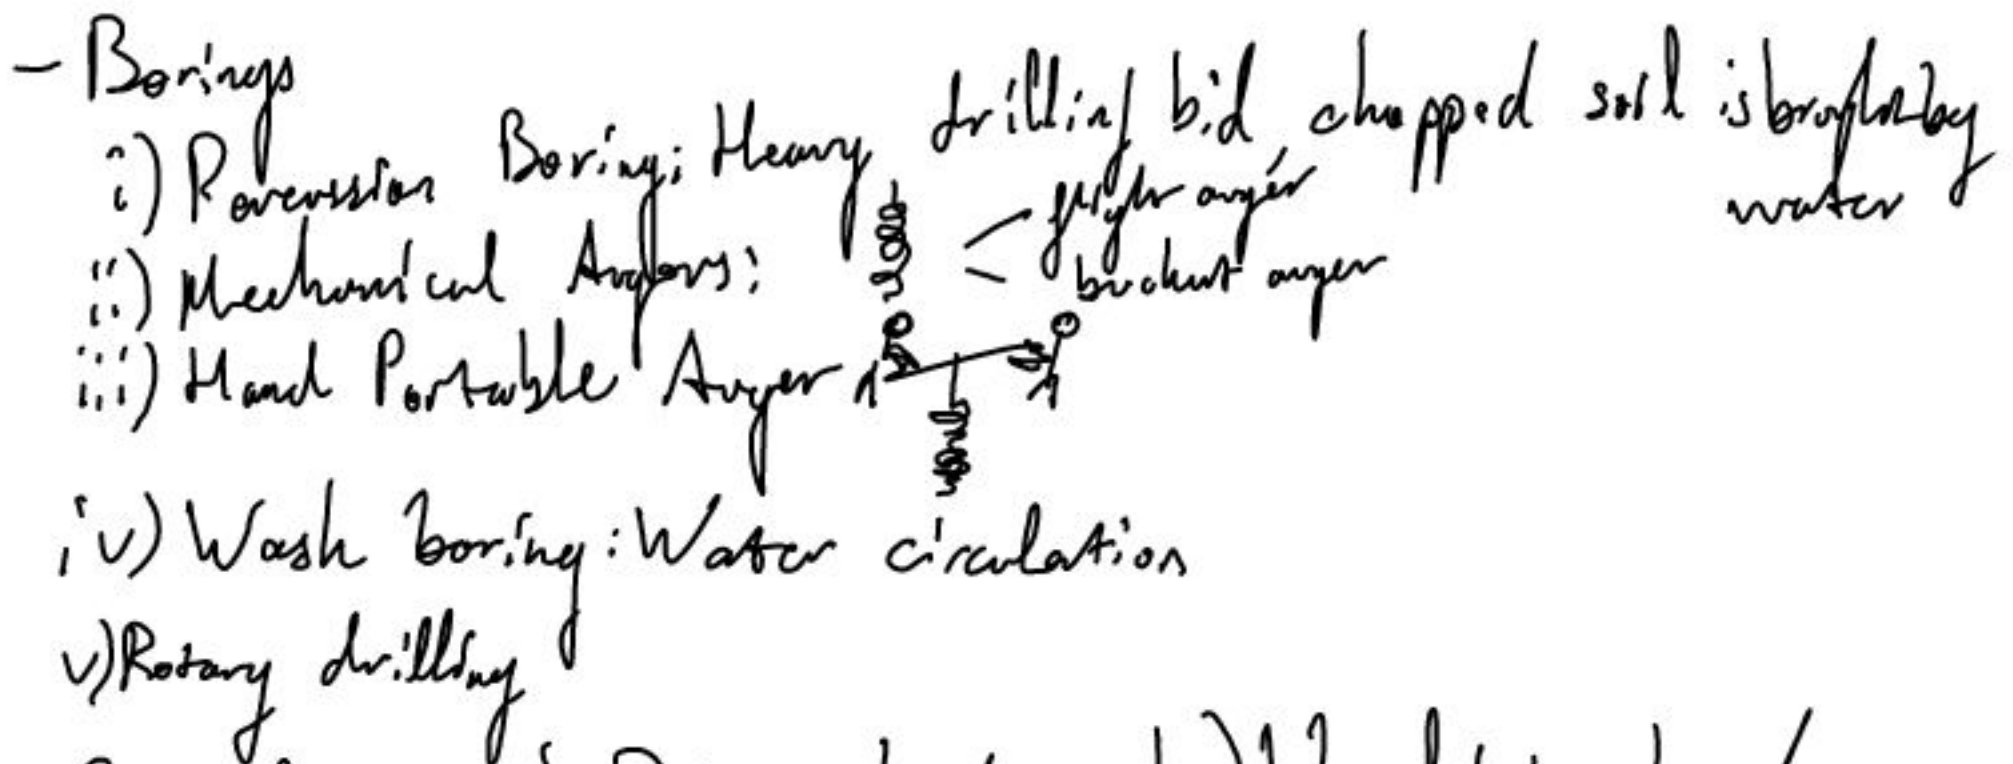 - Borings
i) Percussion Boring; Heavy drilling bid, chopped soil is brought by water
ii) Mechanical Augers: flight auger
bucket auger
iii) Hand Portable Auger
iv) Wash boring: Water circulation
v) Rotary drilling